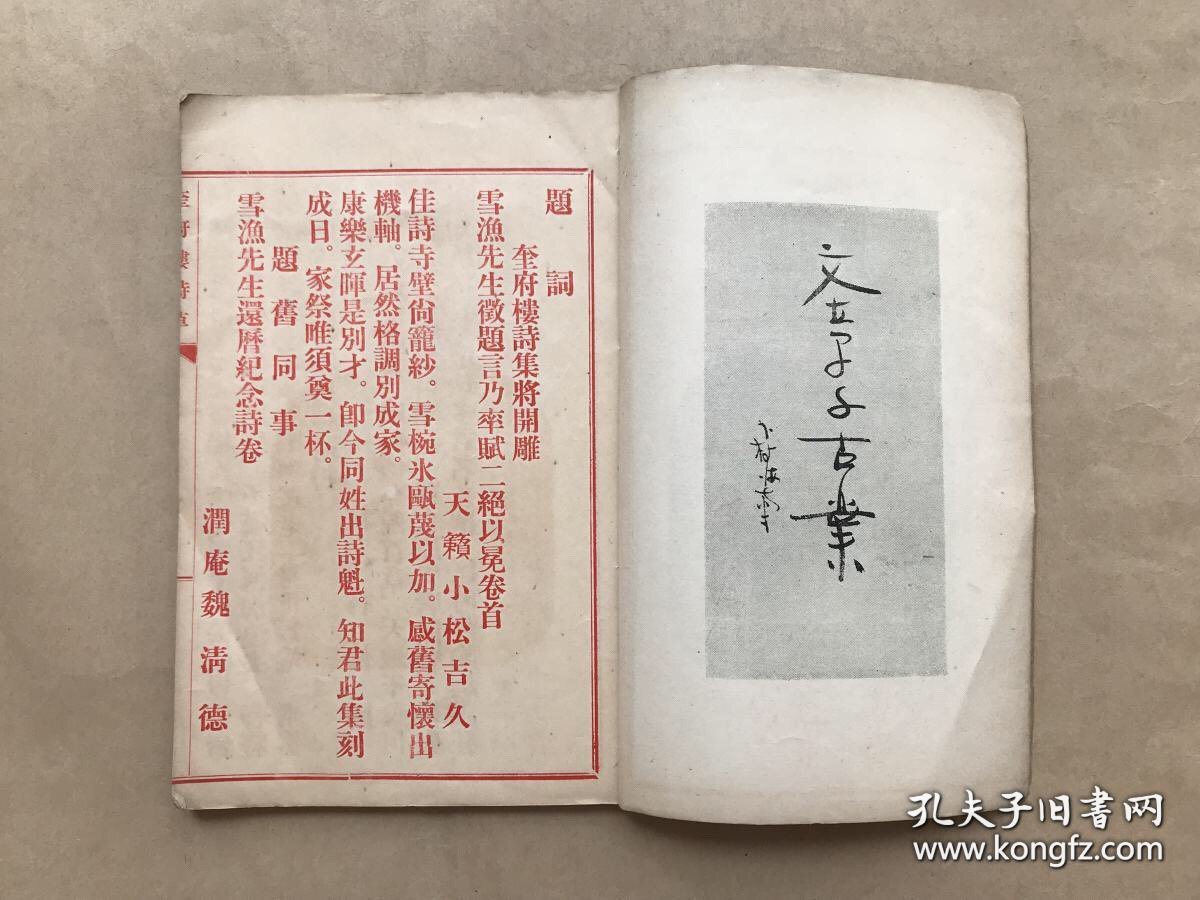 文章千古業
題詞
奎府樓詩集將開雕
雪漁先生徵題言乃率賦二絕以冕卷首
天籟小松吉久
佳詩寺壁尙籠紗。雪椀氷甌蔑以加。感舊寄懷出
機軸。居然格調別成家。
康樂玄暉是別才。卽今同姓出詩魁。知君此集刻
成日。家祭唯須奠一杯。
題舊同事
雪漁先生還曆紀念詩卷
潤庵魏淸德
奎府樓詩草
孔夫子旧书网
www.kongfz.com